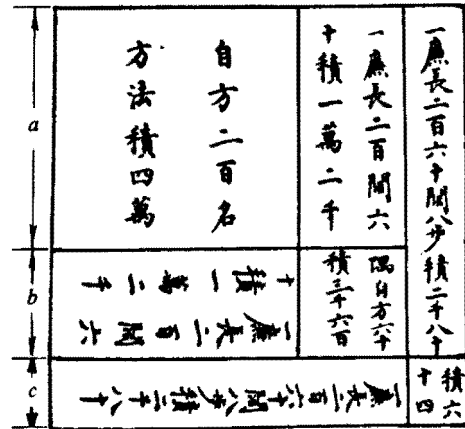 一廉長二百六十闊八步積二千八十
一廉長二百闊六
十積一萬二千
自方二百名
方法積四萬
隅自方六十
積三千六百
一廉長二百闊六
十積一萬二千
一廉長二百六十闊八步積二千八十
積六
十四
a
b
c